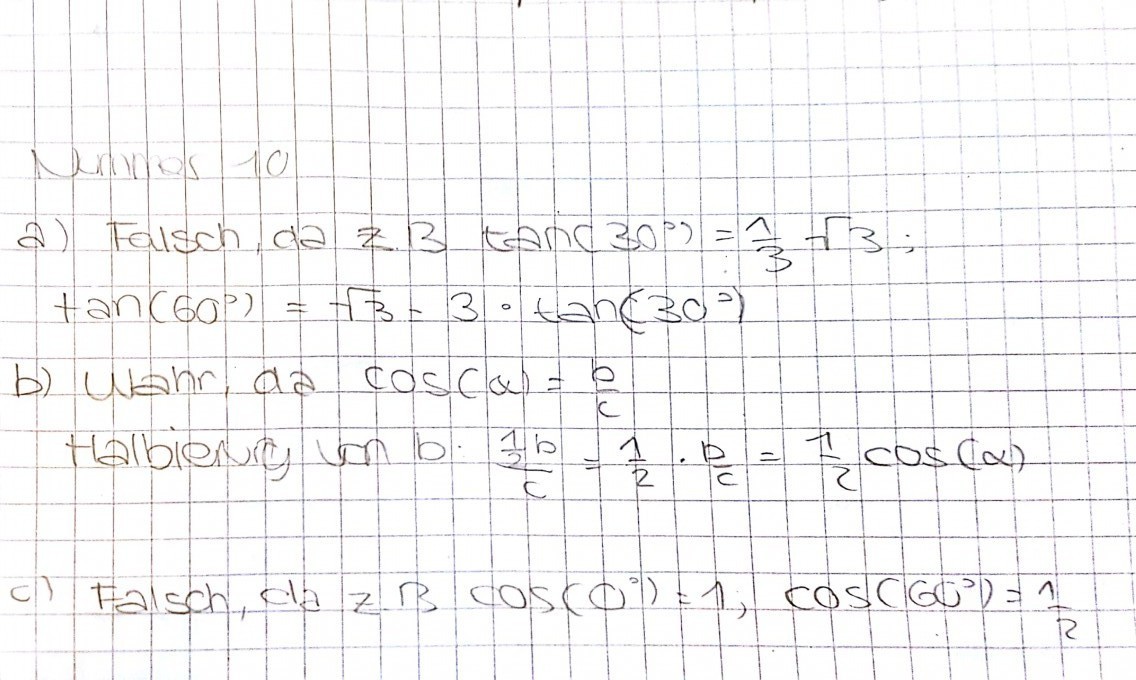 Nummer 10
a) Falsch, da z.B tan(30°) = 1/3 √3;
tan(60°) = √3 = 3 · tan(30°)
b) Wahr, da cos(α) = b/c
Halbierung von b: (1/2 b)/c = 1/2 · b/c = 1/2 cos(α)
c) Falsch, da z.B cos(0°) = 1; cos(60°) = 1/2